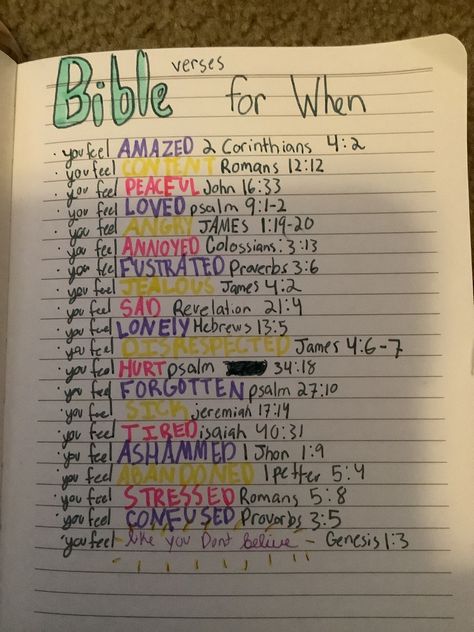 Bible verses for When
• you feel AMAZED 2 Corinthians 4:2
• you feel CONTENT Romans 12:12
• you feel PEACEFUL John 16:33
• you feel LOVED psalm 9:1-2
• you feel ANGRY JAMES 1:19-20
• you feel ANNOYED Colossians: 3:13
• you feel FUSTRATED Proverbs 3:6
• you feel JEALOUS James 4:2
• you feel SAD Revelation 21:4
• you feel LONELY Hebrews 13:5
• you feel DISRESPECTED James 4:6-7
• you feel HURT psalm 34:18
• you feel FORGOTTEN psalm 27:10
• you feel SICK jeremiah 17:14
• you feel TIRED isaiah 40:31
• you feel ASHAMMED 1 Jhon 1:9
• you feel ABANDONED 1 petter 5:4
• you feel STRESSED Romans 5:8
• you feel CONFUSED Proverbs 3:5
• you feel like you Dont believe - Genesis 1:3